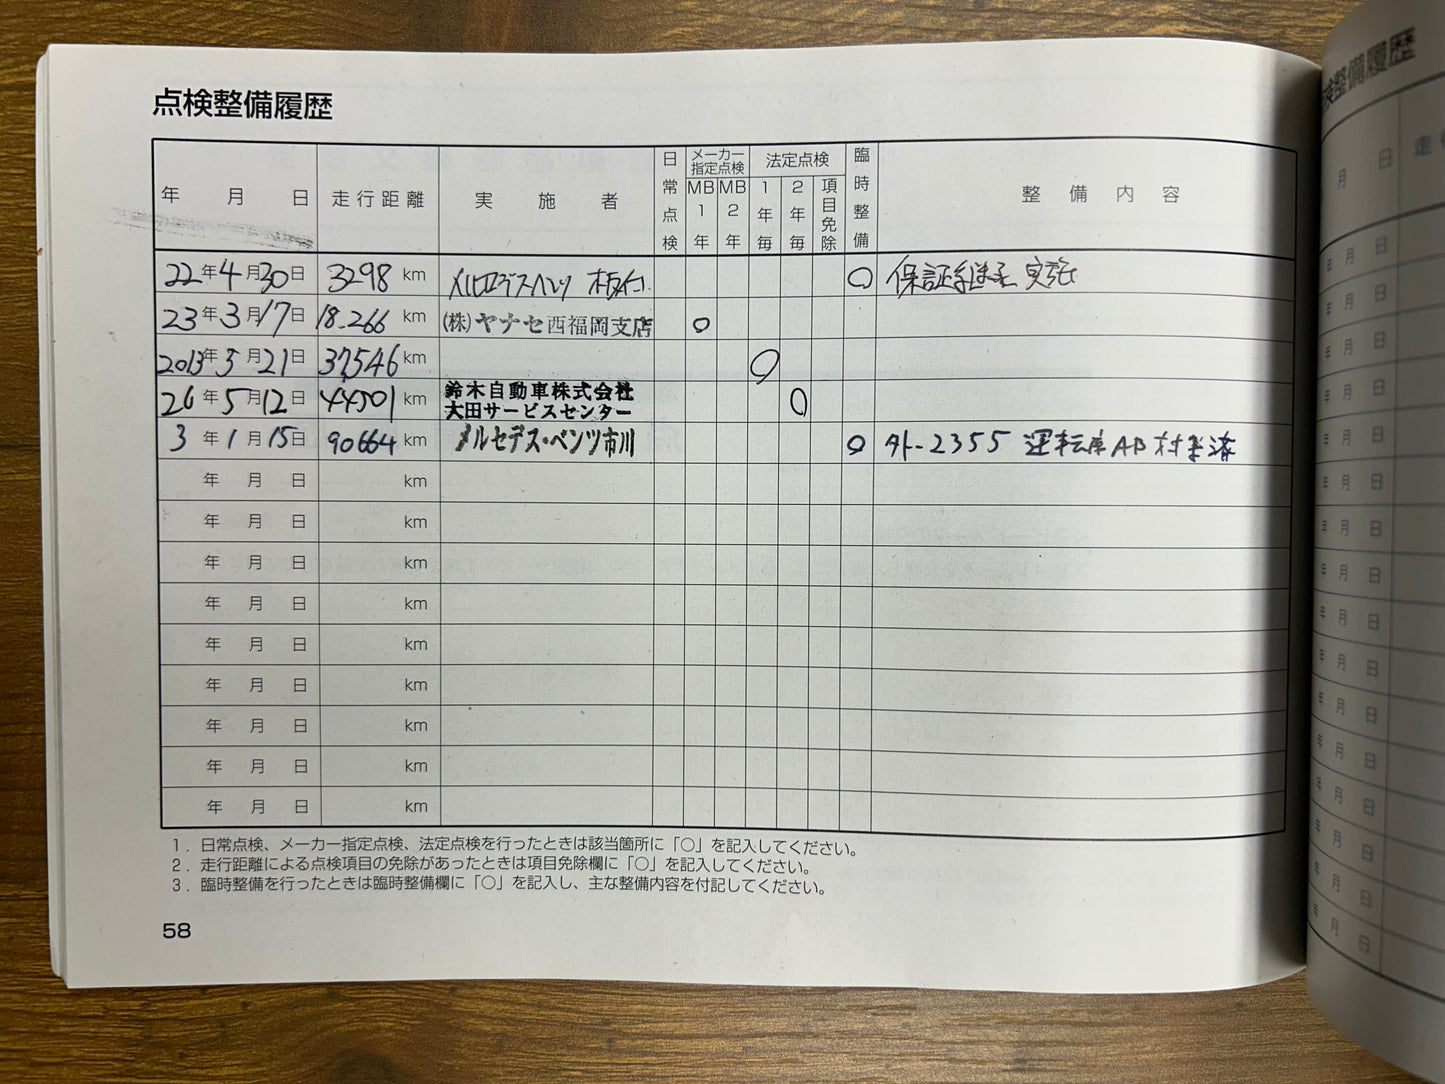 点検整備履歴
年 月 日 走行距離 実施者 日常点検 メーカー指定点検 MB1年 MB2年 法定点検 1年毎 2年毎 項目免除 臨時整備 整備内容
22年4月30日 3298 km メルセデスベンツ 保証継承 実施
23年3月17日 18.266 km (株)ヤナセ西福岡支店 ○
2013年5月21日 37,546 km ○
26年5月12日 44501 km 鈴木自動車株式会社 大田サービスセンター ○
3年1月15日 90664 km メルセデス・ベンツ市川 ○ 外-2355 運転席AB対策済
年 月 日 km
年 月 日 km
年 月 日 km
年 月 日 km
年 月 日 km
年 月 日 km
年 月 日 km
年 月 日 km
年 月 日 km
1. 日常点検、メーカー指定点検、法定点検を行ったときは該当箇所に「○」を記入してください。
2. 走行距離による点検項目の免除があったときは項目免除欄に「○」を記入してください。
3. 臨時整備を行ったときは臨時整備欄に「○」を記入し、主な整備内容を付記してください。
58